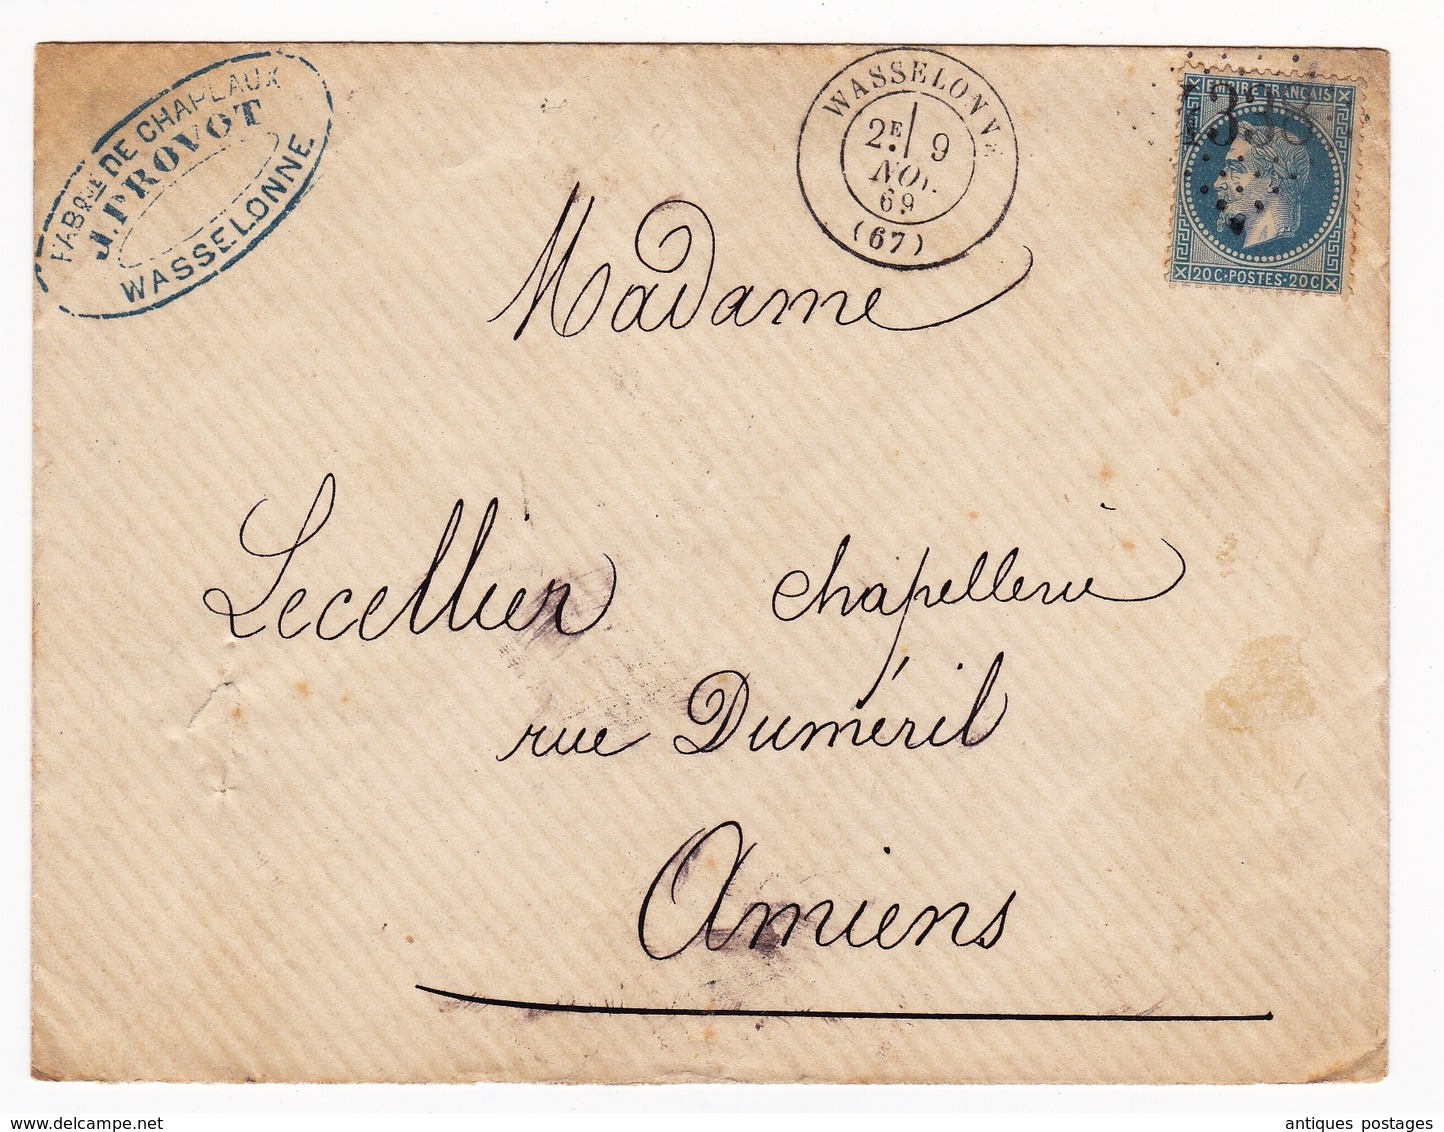 FABque DE CHAPEAUX
J. PROVOT
WASSELONNE.
WASSELONNE
2E 9
NOV.
69
(67)
4338
EMPIRE FRANÇAIS
20C·POSTES·20C
Madame
Lecellier chapellerie
rue Duméril
Amiens
www.delcampe.net
antiques postages